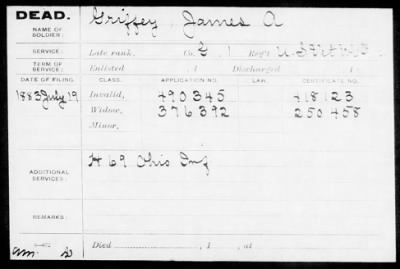 DEAD.
NAME OF SOLDIER: Griffey, James A
SERVICE: Late rank, Co. G, 1 Reg't
TERM OF SERVICE: Enlisted , 1 Discharged , 1
DATE OF FILING. CLASS. APPLICATION NO. LAW. CERTIFICATE NO.
1883 July 19 Invalid, 490345 418123
Widow, 376392 250458
Minor,
ADDITIONAL SERVICES: H 69 Ohio Inf
REMARKS:
Died , 1 , at